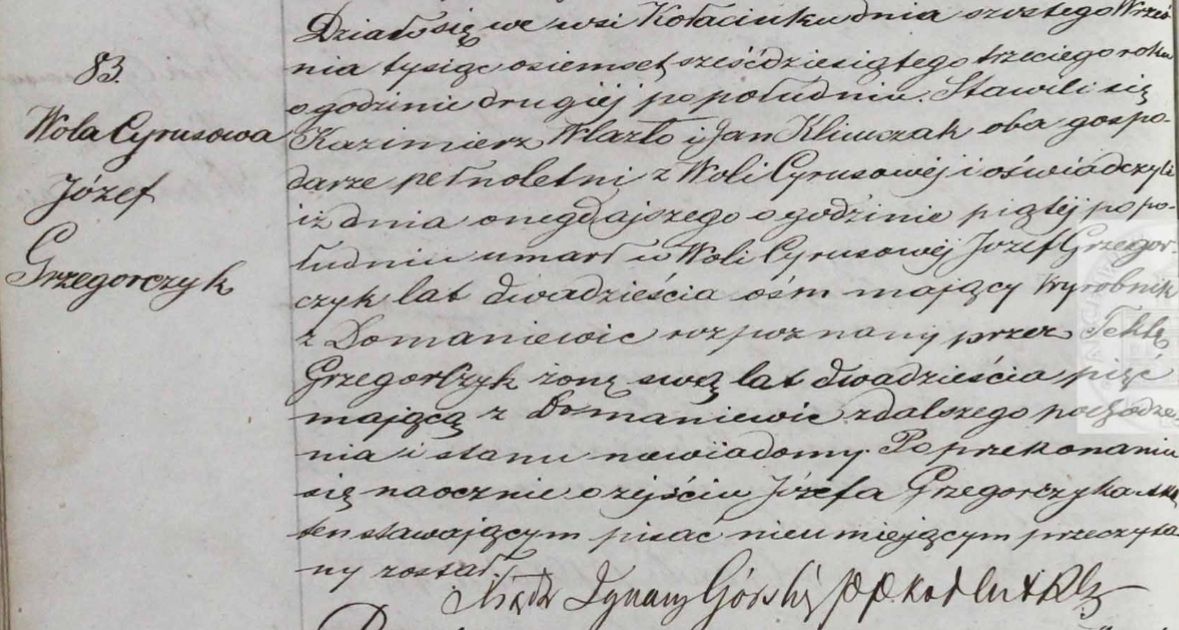 83.
Wola Cyrusowa
Józef
Grzegorczyk
Działo się we wsi Kołacinku dnia szostego Wrześ-
nia tysiąc osiemset sześćdziesiątego trzeciego roku
o godzinie drugiej po południu. Stawili się
Kazimierz Wlazło i Jan Klimczak oba gospo-
darze pełnoletni z Woli Cyrusowej i oświadczyli
iż dnia onegdajszego o godzinie piątej popo-
łudniu umarł w Woli Cyrusowej Jozef Grzegor-
czyk lat dwadzieścia ośm mający Wyrobnik
z Domaniewic rozpoznany przez Teklę
Grzegorczyk żonę swą lat dwadzieścia pięć
mającą z Domaniewic z dalszego pochodze
nia i stanu niewiadomy. Po przekonaniu
się naocznie o zejściu Józefa Grzegorczyka Akt
ten stawającym pisać nieumiejącym przeczyta
ny został.
Ignacy Górski